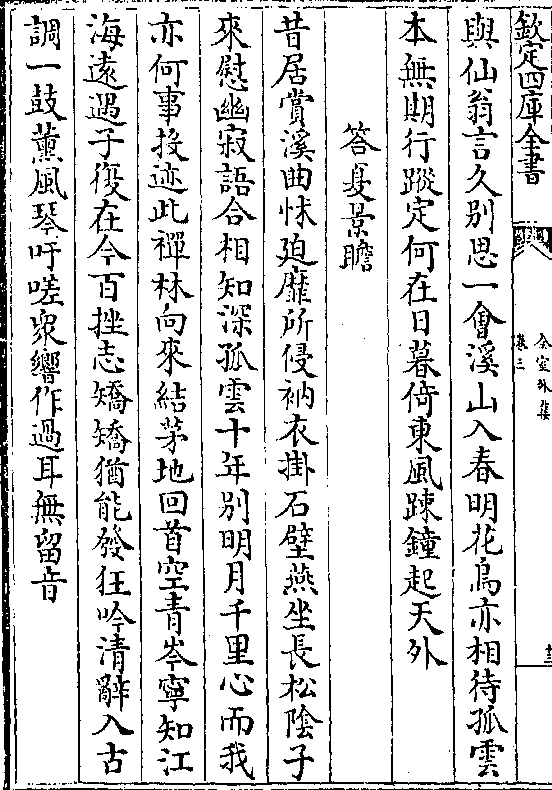 欽定四庫全書
全室外集
卷三
與仙翁言久別思一會溪山入春明花鳥亦相待孤雲
本無期行蹤定何在日暮倚東風踈鐘起天外
答夏景瞻
昔居賞溪曲怵廹靡所侵衲衣掛石壁燕坐長松陰子
來慰幽寂語合相知深孤雲十年別明月千里心而我
亦何事投迹此禪林向來結茅地回首空青岑寧知江
海遠遇子復在今百挫志矯矯猶能發狂吟清辭入古
調一鼓薰風琴吁嗟衆響作過耳無留音